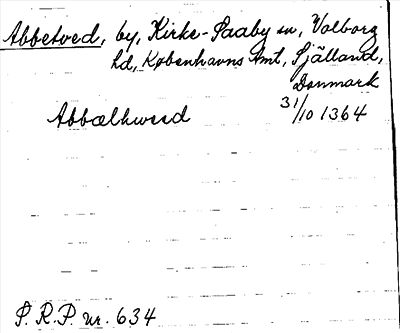 Abbetved, by, Kirke-Saaby sn, Volborg
hd, Københavns Amt, Själland,
Danmark
31/10 1364
Abbælhweed
S.R.P. nr. 634